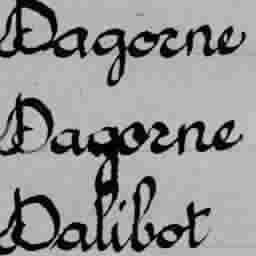 Dagorne
Dagorne
Dalibot